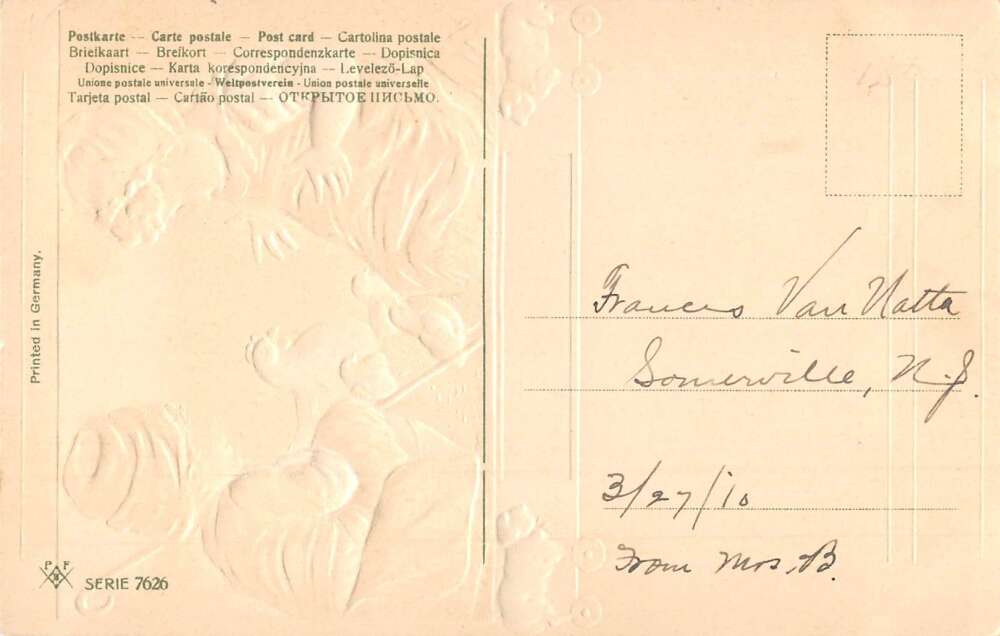 Postkarte — Carte postale — Post card — Cartolina postale
Briefkaart — Brefkort — Correspondenzkarte — Dopisnica
Dopisnice — Karta korespondencyjna — Levelező-Lap
Unione postale universale - Weltpostverein - Union postale universelle
Tarjeta postal — Cartão postal — ОТКРЫТОЕ ПИСЬМО.
Printed in Germany.
P F B
SERIE 7626
Frances Van Natta
Somerville, N.J.
3/27/10
From Mrs. B.